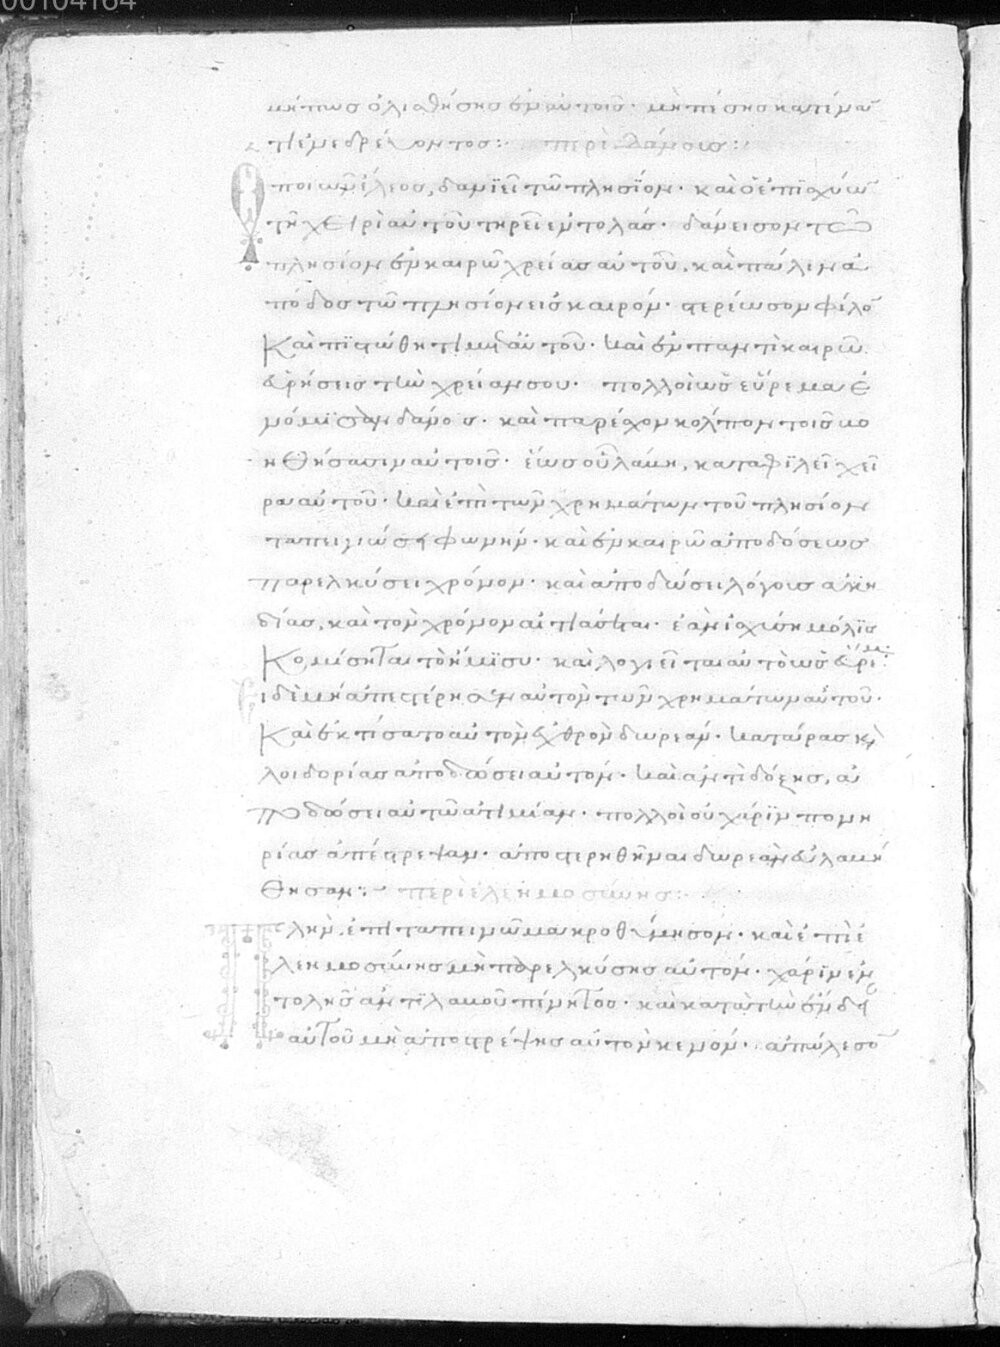 00104164
μήπως ὀλισθήσῃς ἐν αὐτοῖς· μὴ πέσῃς κατέναν
τι ἐνεδρεύοντος: περὶ δάνους:
Ὁ ποιῶν ἔλεος, δανϊεῖ τῶ πλησίον· καὶ ὁ ἐπϊσχύων
τῆ χειρὶ αὐτοῦ τηρεῖ ἐντολάς· δάνεισον τῶ
πλησίον ἐν καιρῶ χρείας αὐτοῦ, καὶ πάλιν ἀ
πόδος τῶ πλησίον εἰς καιρόν· στερέωσον λόγον
Καὶ πϊστώθητι μετ αὐτοῦ· καὶ ἐν παντὶ καιρῶ
εὑρήσεις τὴν χρείαν σου· πολλοὶ ὡς εὕρεμα ἐ
νόμϊσαν δάνος· καὶ παρέσχον κόπον τοῖς βο
ηθήσασιν αὐτοῖς· ἕως οὗ λάβη, καταφϊλεῖ χεῖ
ρα αὐτοῦ· καὶ ἐπὶ τῶν χρημάτων τοῦ πλησίον
ταπεινώσει φωνήν· καὶ ἐν καιρῶ ἀποδόσεως
παρελκύσει χρόνον· καὶ ἀποδώσει λόγους ἀκη
δίας, καὶ τὸν χρόνον αἰτιάσεται· ἐὰν ἰσχύση μόλϊς
Κομίσηται τὸ ἥμϊσυ· καὶ λογιεῖται αὐτὸ ὡς εὕρεμ·
Εἰ δὲ μὴ ἀπεστέρησεν αὐτὸν τῶν χρημάτων αὐτοῦ·
Καὶ ἐκτήσατο αὐτὸν ἐχθρὸν δωρεάν· κατάρας κὶ
λοιδορίας ἀποδώσει αὐτῶ· καὶ ἀντὶ δόξης, ἀ
ποδώσει αὐτῶ ἀτιμίαν· πολλοὶ οὐ χάρϊν πονη
ρίας ἀπέστρεψαν· ἀποστερηθῆναι δωρεὰν εὐλαβή
θησαν: περὶ ἐλεημοσύνης:
Πλὴν ἐπὶ ταπεινῶ μακροθύμησον· καὶ ἐπὶ ἐ
λεημοσύνης μὴ παρελκύσης αὐτόν· χάρϊν ἐν
τολῆς ἀντϊλαβοῦ πένητος· καὶ κατὰ τὴν ἔνδει
αν αὐτοῦ μὴ ἀποστρέψης αὐτὸν κενόν· ἀπόλεσον